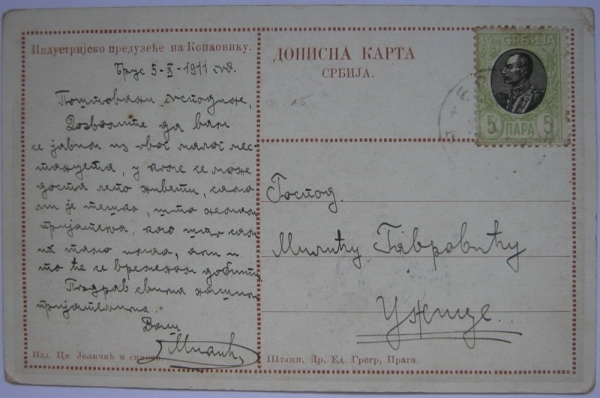 Индустријско предузеће на Копаонику.
Брус 5-X-1911 год.
Поштовани господине,
Дозволите да вам
се јавим из овог малог мес-
танцета, у коме се може
доста лепо живети, само
ми је тешко, што немам
пријатеља, као што сам
их тамо имао, али и
то ће се временом добити
Поздрав свима нашим
пријатељима
Ваш
Милић
Изд. Цв. Јеличић и синови
ДОПИСНА КАРТА
СРБИЈА.
СРБИЈА
5 ПАРА 5
Господ.
Милићу Гавровићу
Ужице.
Штампа. Др. Ед. Грегр, Праг.